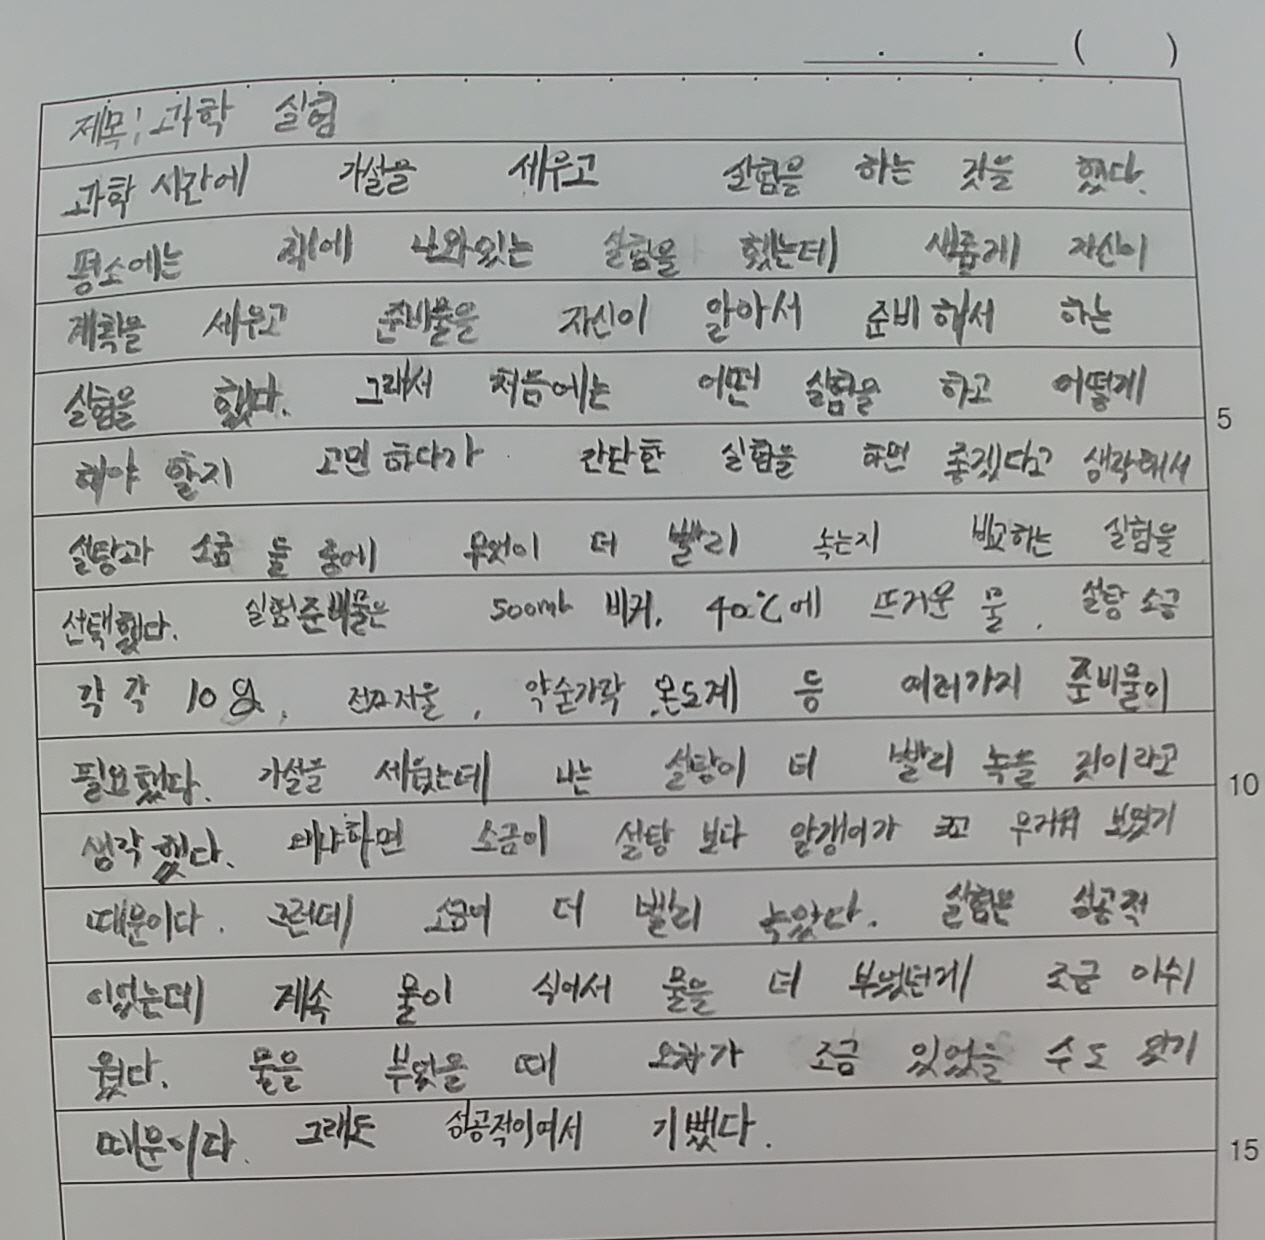 ( )
제목: 과학 실험
과학 시간에 가설을 세우고 실험을 하는 것을 했다.
평소에는 책에 나와있는 실험을 했는데 새롭게 자신이
계획을 세우고 준비물을 자신이 알아서 준비해서 하는
실험을 했다. 그래서 처음에는 어떤 실험을 하고 어떻게
5
해야 할지 고민하다가 간단한 실험을 하면 좋겠다고 생각해서
설탕과 소금 둘 중에 무엇이 더 빨리 녹는지 비교하는 실험을
선택했다. 실험준비물은 500ml 비커, 40℃에 뜨거운 물, 설탕 소금
각 각 10g, 전자저울, 약숟가락, 온도계 등 여러가지 준비물이
필요했다. 가설을 세웠는데 나는 설탕이 더 빨리 녹을 것이라고
10
생각했다. 왜야하면 소금이 설탕 보다 알갱이가 크고 무거워 보였기
때문이다. 그런데 소금이 더 빨리 녹았다. 실험은 성공적
이었는데 계속 물이 식어서 물을 더 부었던게 조금 아쉬
웠다. 물을 부었을 때 오차가 조금 있었을 수도 있기
때문이다. 그래도 성공적이여서 기뻤다.
15